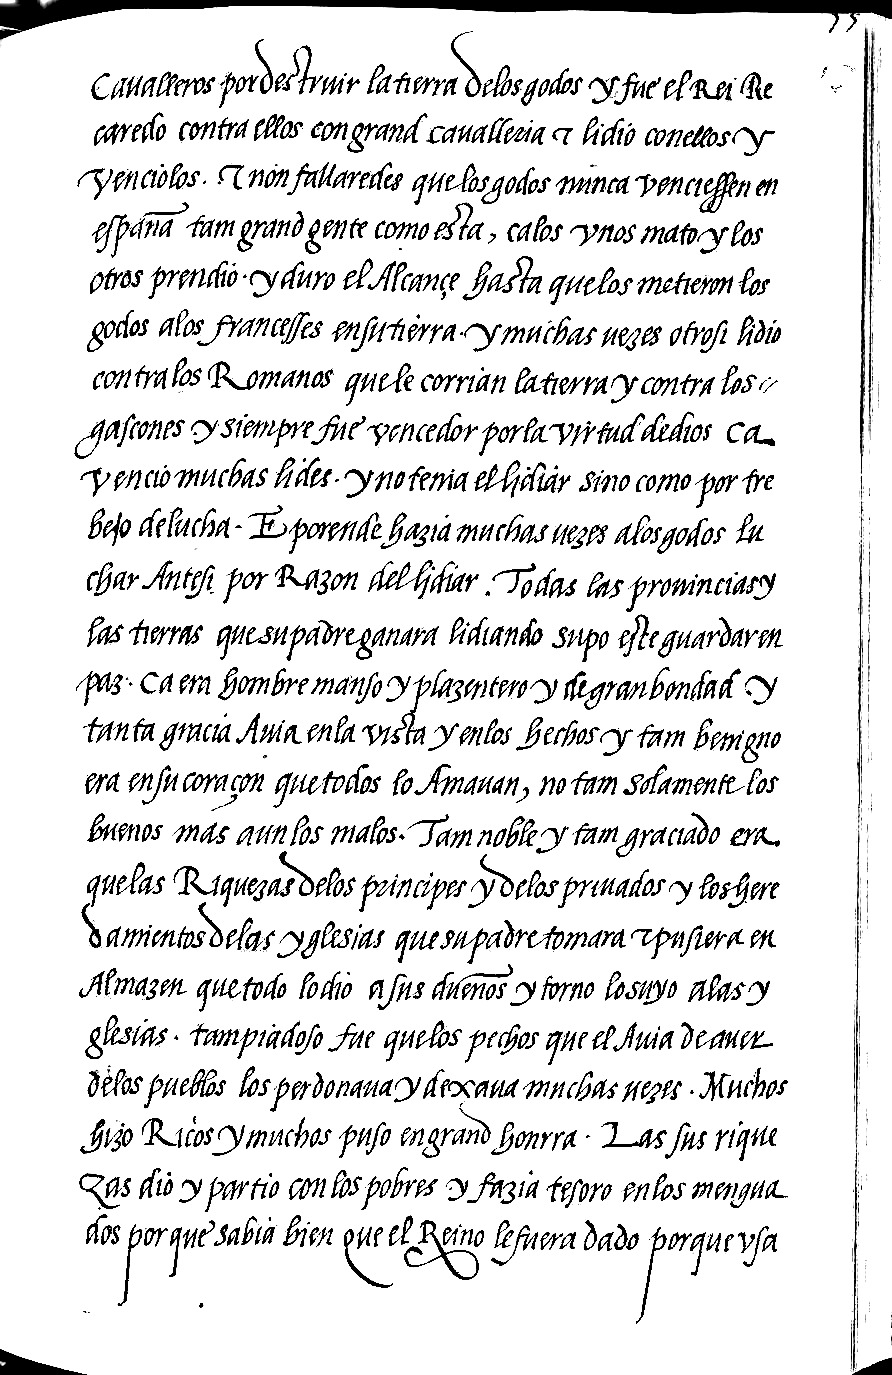 Cavalleros por destruir la tierra de los godos y fue el Rei Re
caredo contra ellos con grand cavalleria τ lidio con ellos y
venciolos. τ non fallaredes que los godos nunca venciessen en
españa tam grand gente como esta, ca los vnos mato y los
otros prendio. y duro el Alcançe hasta que los metieron los
godos a los francesses en su tierra. y muchas uezes otrosi lidio
contra los Romanos que le corrian la tierra y contra los
gascones y siempre fue vencedor por la virtud de dios ca
vencio muchas lides. y no tenia el lidiar sino como por tre
bejo de lucha. E porende hazia muchas uezes a los godos lu
char Antesi por Razon del lidiar. Todas las prouincias y
las tierras que su padre ganara lidiando supo este guardar en
paz. Ca era hombre manso y plazentero y de gran bondad y
tanta gracia Auia en la vista y en los hechos y tam benigno
era en su coraçon que todos lo Amauan, no tam solamente los
buenos mas aun los malos. Tam noble y tam graciado era
que las Riquezas de los principes y de los priuados y los here
damientos de las yglesias que su padre tomara τ pusiera en
Almazen que todo lo dio a sus dueños y torno lo suyo a las y
glesias. tam piadoso fue que los pechos que el Auia de auer
de los pueblos los perdonaua y dexaua muchas uezes. Muchos
hizo Ricos y muchos puso en grand honrra. Las sus rique
zas dio y partio con los pobres y fazia tesoro en los mengua
dos porque sabia bien que el Reino le fuera dado porque vsa